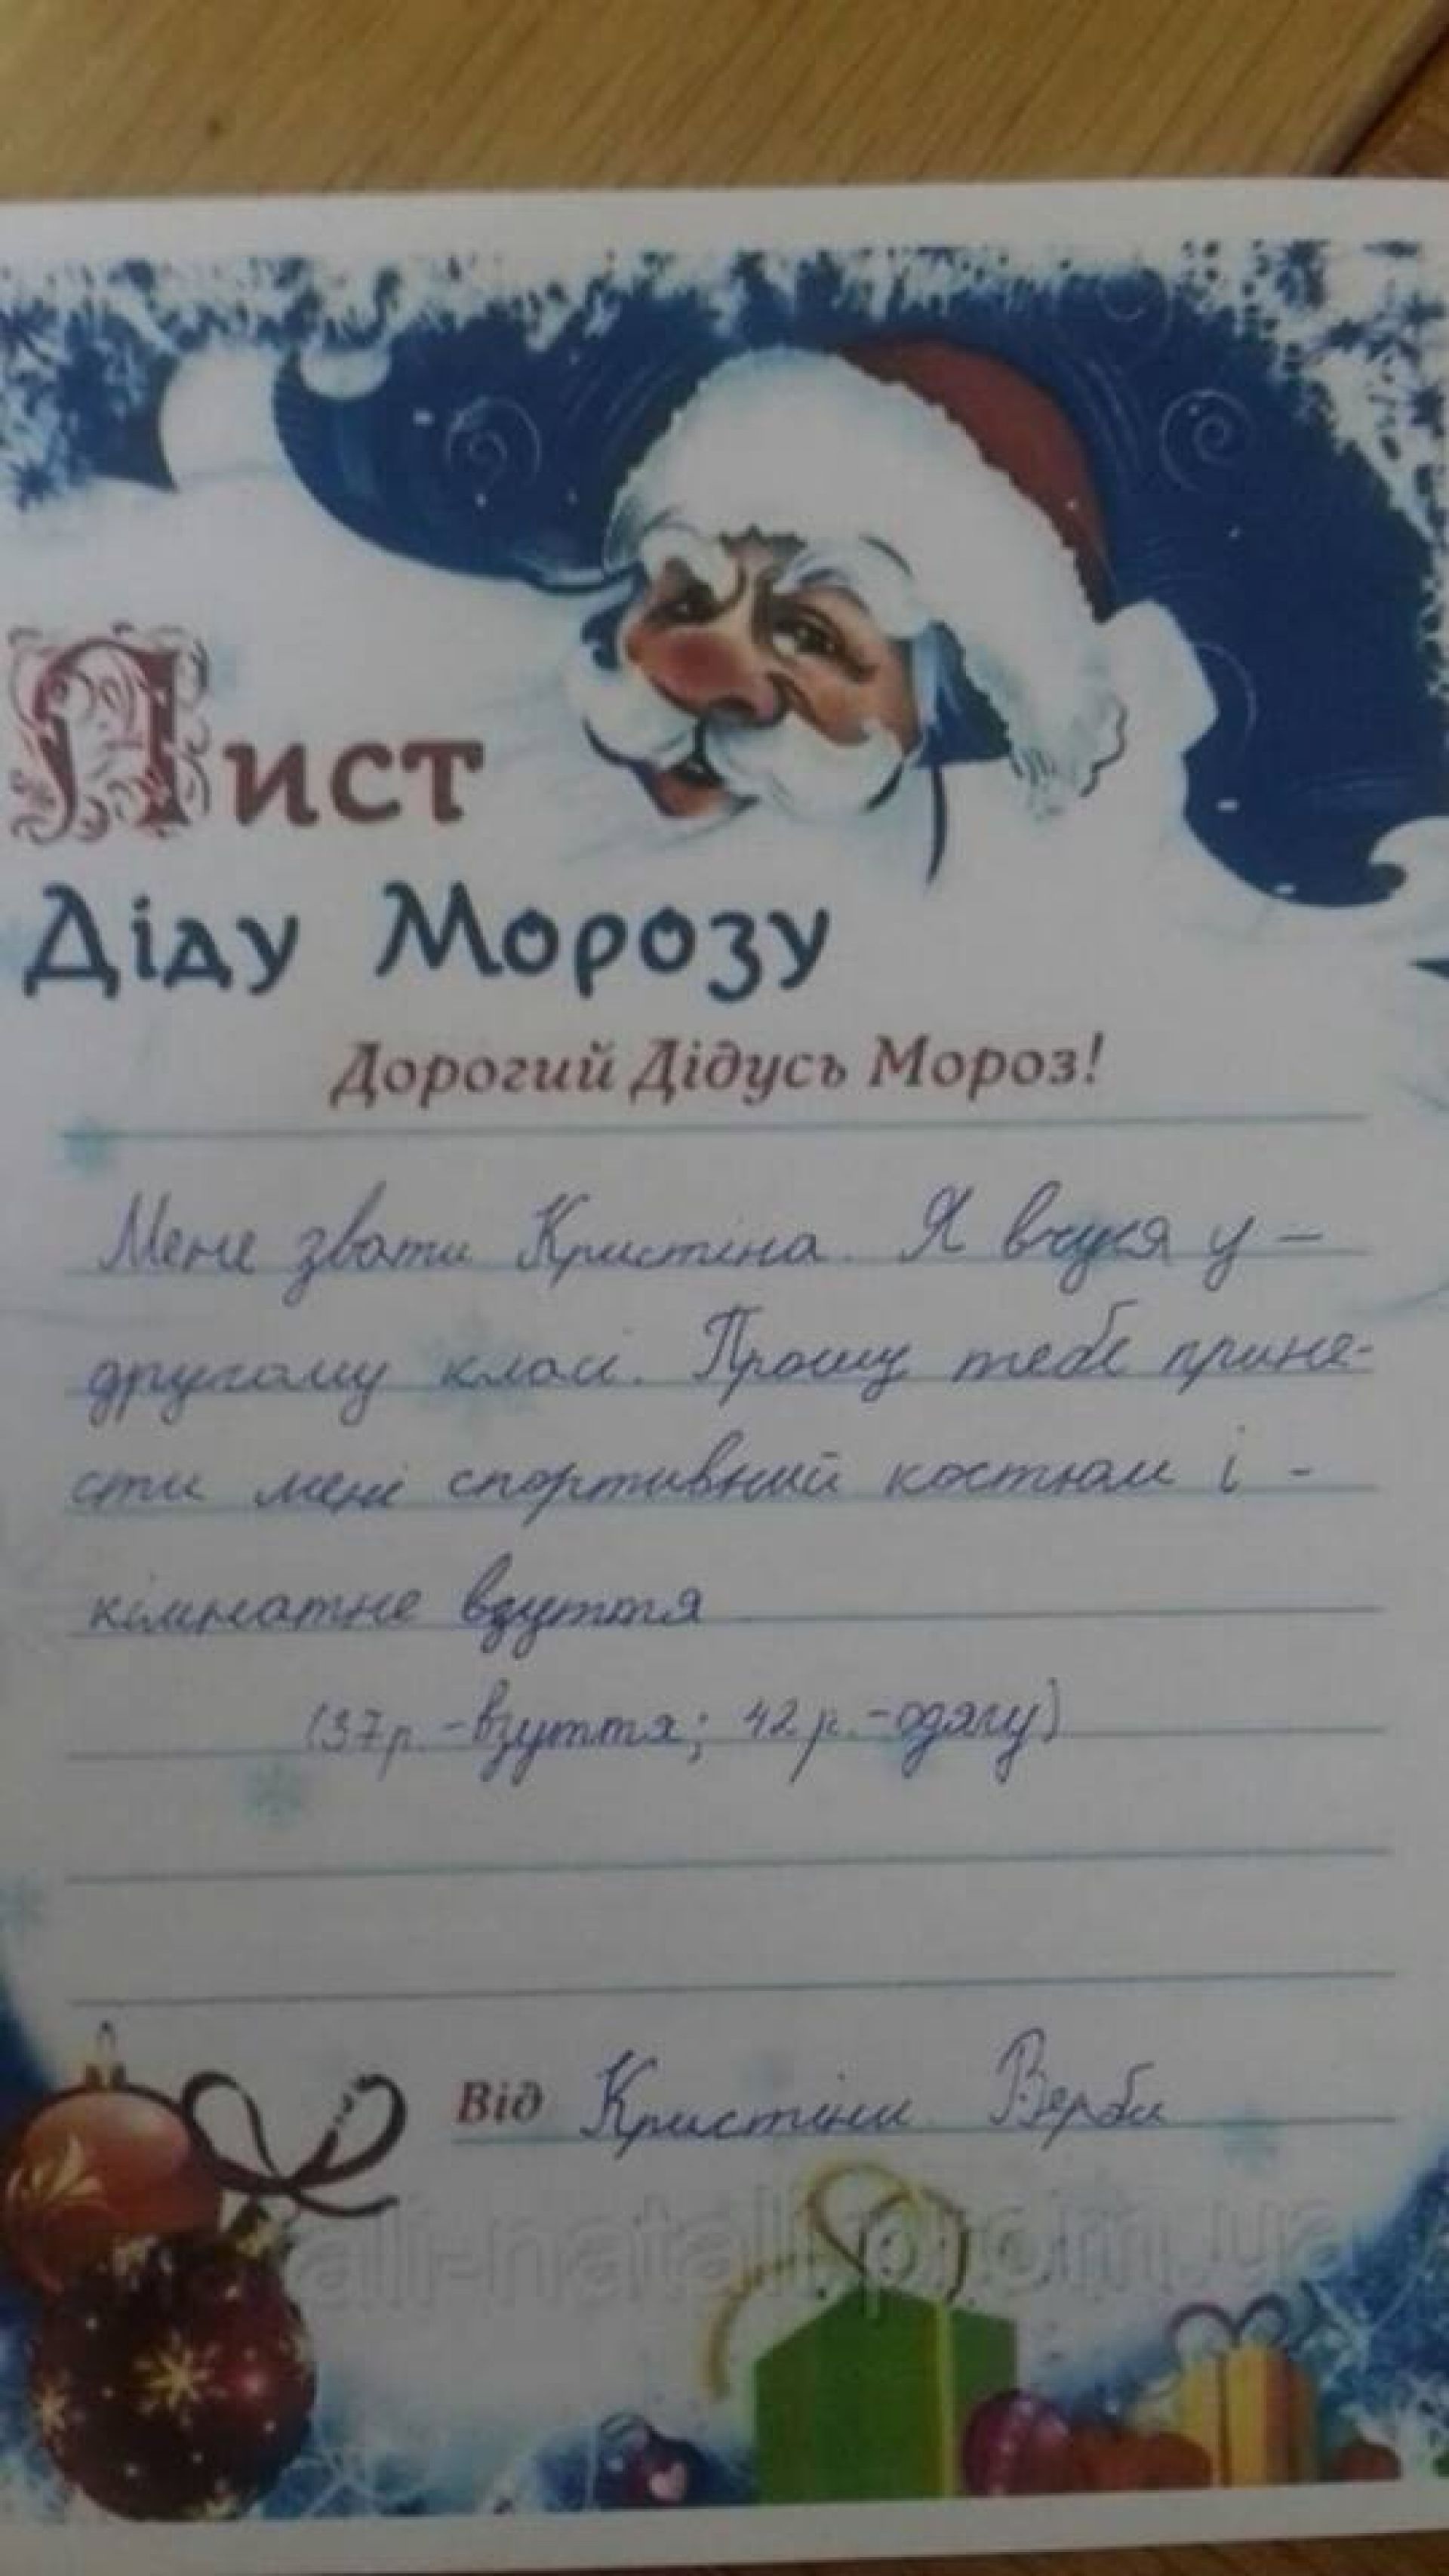 Лист
Діду Морозу
Дорогий Дідусь Мороз!
Мене звати Крістіна. Я вчуся у –
другому класі. Прошу тебе прине-
сти мені спортивний костюм і -
кімнатне взуття
(37р. - взуття; 42 р. - одягу)
Від Крістіни Верби
alli-natali.prom.ua